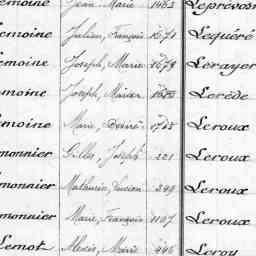 emoine Jean, Marie 1483 Leprévos
emoine Julien, François 1571 Lequéré
emoine Joseph, Marie 1678 Lerayer
emoine Joseph, Marie Lerède
emoine Marie, Désiré 1765 Leroux
monnier Gilles, Joseph 221 Leroux
monnier Mathurin, Lucien 299 Leroux
monnier Marie, François 1107 Leroux
Lemot Alexis, Marie 446 Leroy